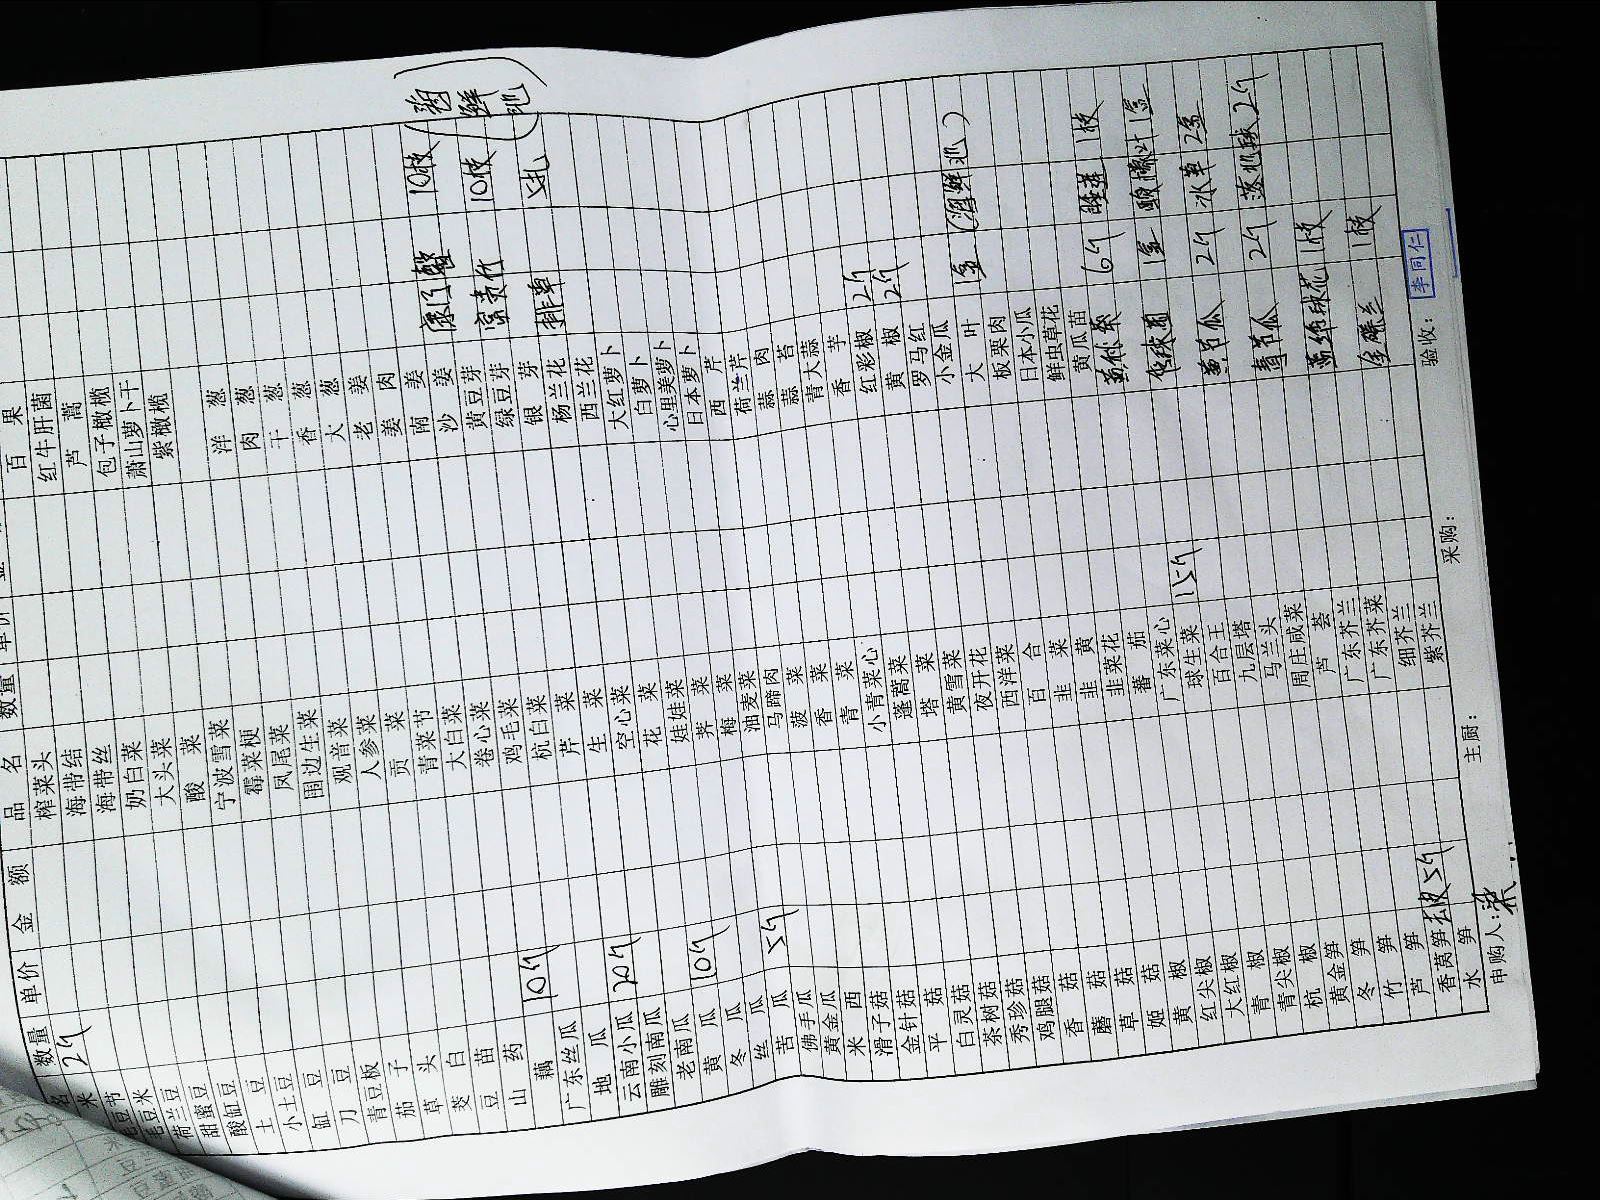 名 数量 单价 金 额
米 2斤
毛豆节
毛豆米
荷兰豆
甜蜜豆
酸缸豆
土豆
小土豆
缸豆
刀豆
青豆板
茄子
草头
茭白
豆苗
山药
藕 10斤
广东丝瓜
地瓜
云南小瓜 20斤
雕刻南瓜
老南瓜
黄瓜 10斤
冬瓜
丝瓜
苦瓜 5斤
佛手瓜
黄金瓜
米西
滑子菇
金针菇
平菇
白灵菇
茶树菇
秀珍菇
鸡腿菇
香菇
蘑菇
草菇
姬菇
黄椒
红尖椒
大红椒
青椒
青尖椒
杭椒
黄金笋
冬笋
竹笋
芦笋
香莴笋 去皮5斤
水笋
品名 数量 单价
榨菜头
海带结
海带丝
奶白菜
大头菜
酸菜
宁波雪菜
霉菜梗
凤尾菜
围边生菜
观音菜
人参菜
贡菜
青菜节
大白菜
卷心菜
鸡毛菜
杭白菜
芹菜
生菜
空心菜
花菜
娃娃菜
荠菜
梅菜
油麦菜
马蹄肉
菠菜
香菜
青菜
小青菜心
蓬蒿菜
塔菜
黄雪菜
夜开花
西洋菜
百合
韭菜
韭黄
韭菜花
番茄
广东菜心
球生菜 15斤
百合王
九层塔
马兰头
周庄咸菜
芦荟
广东芥兰
广东芥菜
细芥兰
紫芥兰
百果
红牛肝菌
芦蒿
包子橄榄
萧山萝卜干
紫橄榄
洋葱
肉葱
干葱
香葱
大葱
老姜
姜肉
南姜
沙姜
黄豆芽
绿豆芽
银芽
杨兰花
西兰花
大红萝卜
白萝卜
心里美萝卜
日本萝卜
西芹
荷兰芹
蒜肉
蒜苔
青大蒜
香芋
红彩椒 2斤
黄椒 2斤
罗马红
小金瓜
大叶 1盒
板栗肉
日本小瓜
鲜虫草花
黄瓜苗
6斤
1盒
黄节瓜 2斤
青节瓜 2斤
蓝绣球花 1枝
1枝
康乃馨 10枝
富贵竹 10枝
排草 5扎
1枝
1盒
水草 2盒
2斤
申购人:
主厨:
采购:
验收:
李同仁